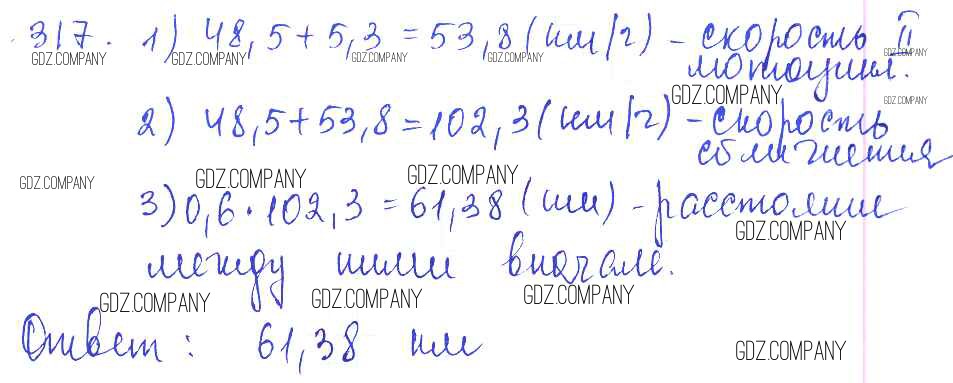 317. 1) 48,5 + 5,3 = 53,8 (км/ч) - скорость II
GDZ.COMPANY GDZ.COMPANY GDZ.COMPANY GDZ.COMPANY GDZ.COMPANY
мотоцикл.
GDZ.COMPANY GDZ.COMPANY
2) 48,5 + 53,8 = 102,3 (км/ч) - скорость
сближения
GDZ.COMPANY GDZ.COMPANY GDZ.COMPANY
3) 0,6 · 102,3 = 61,38 (км) - расстояние
GDZ.COMPANY
между ними вначале.
GDZ.COMPANY GDZ.COMPANY GDZ.COMPANY
Ответ: 61,38 км
GDZ.COMPANY